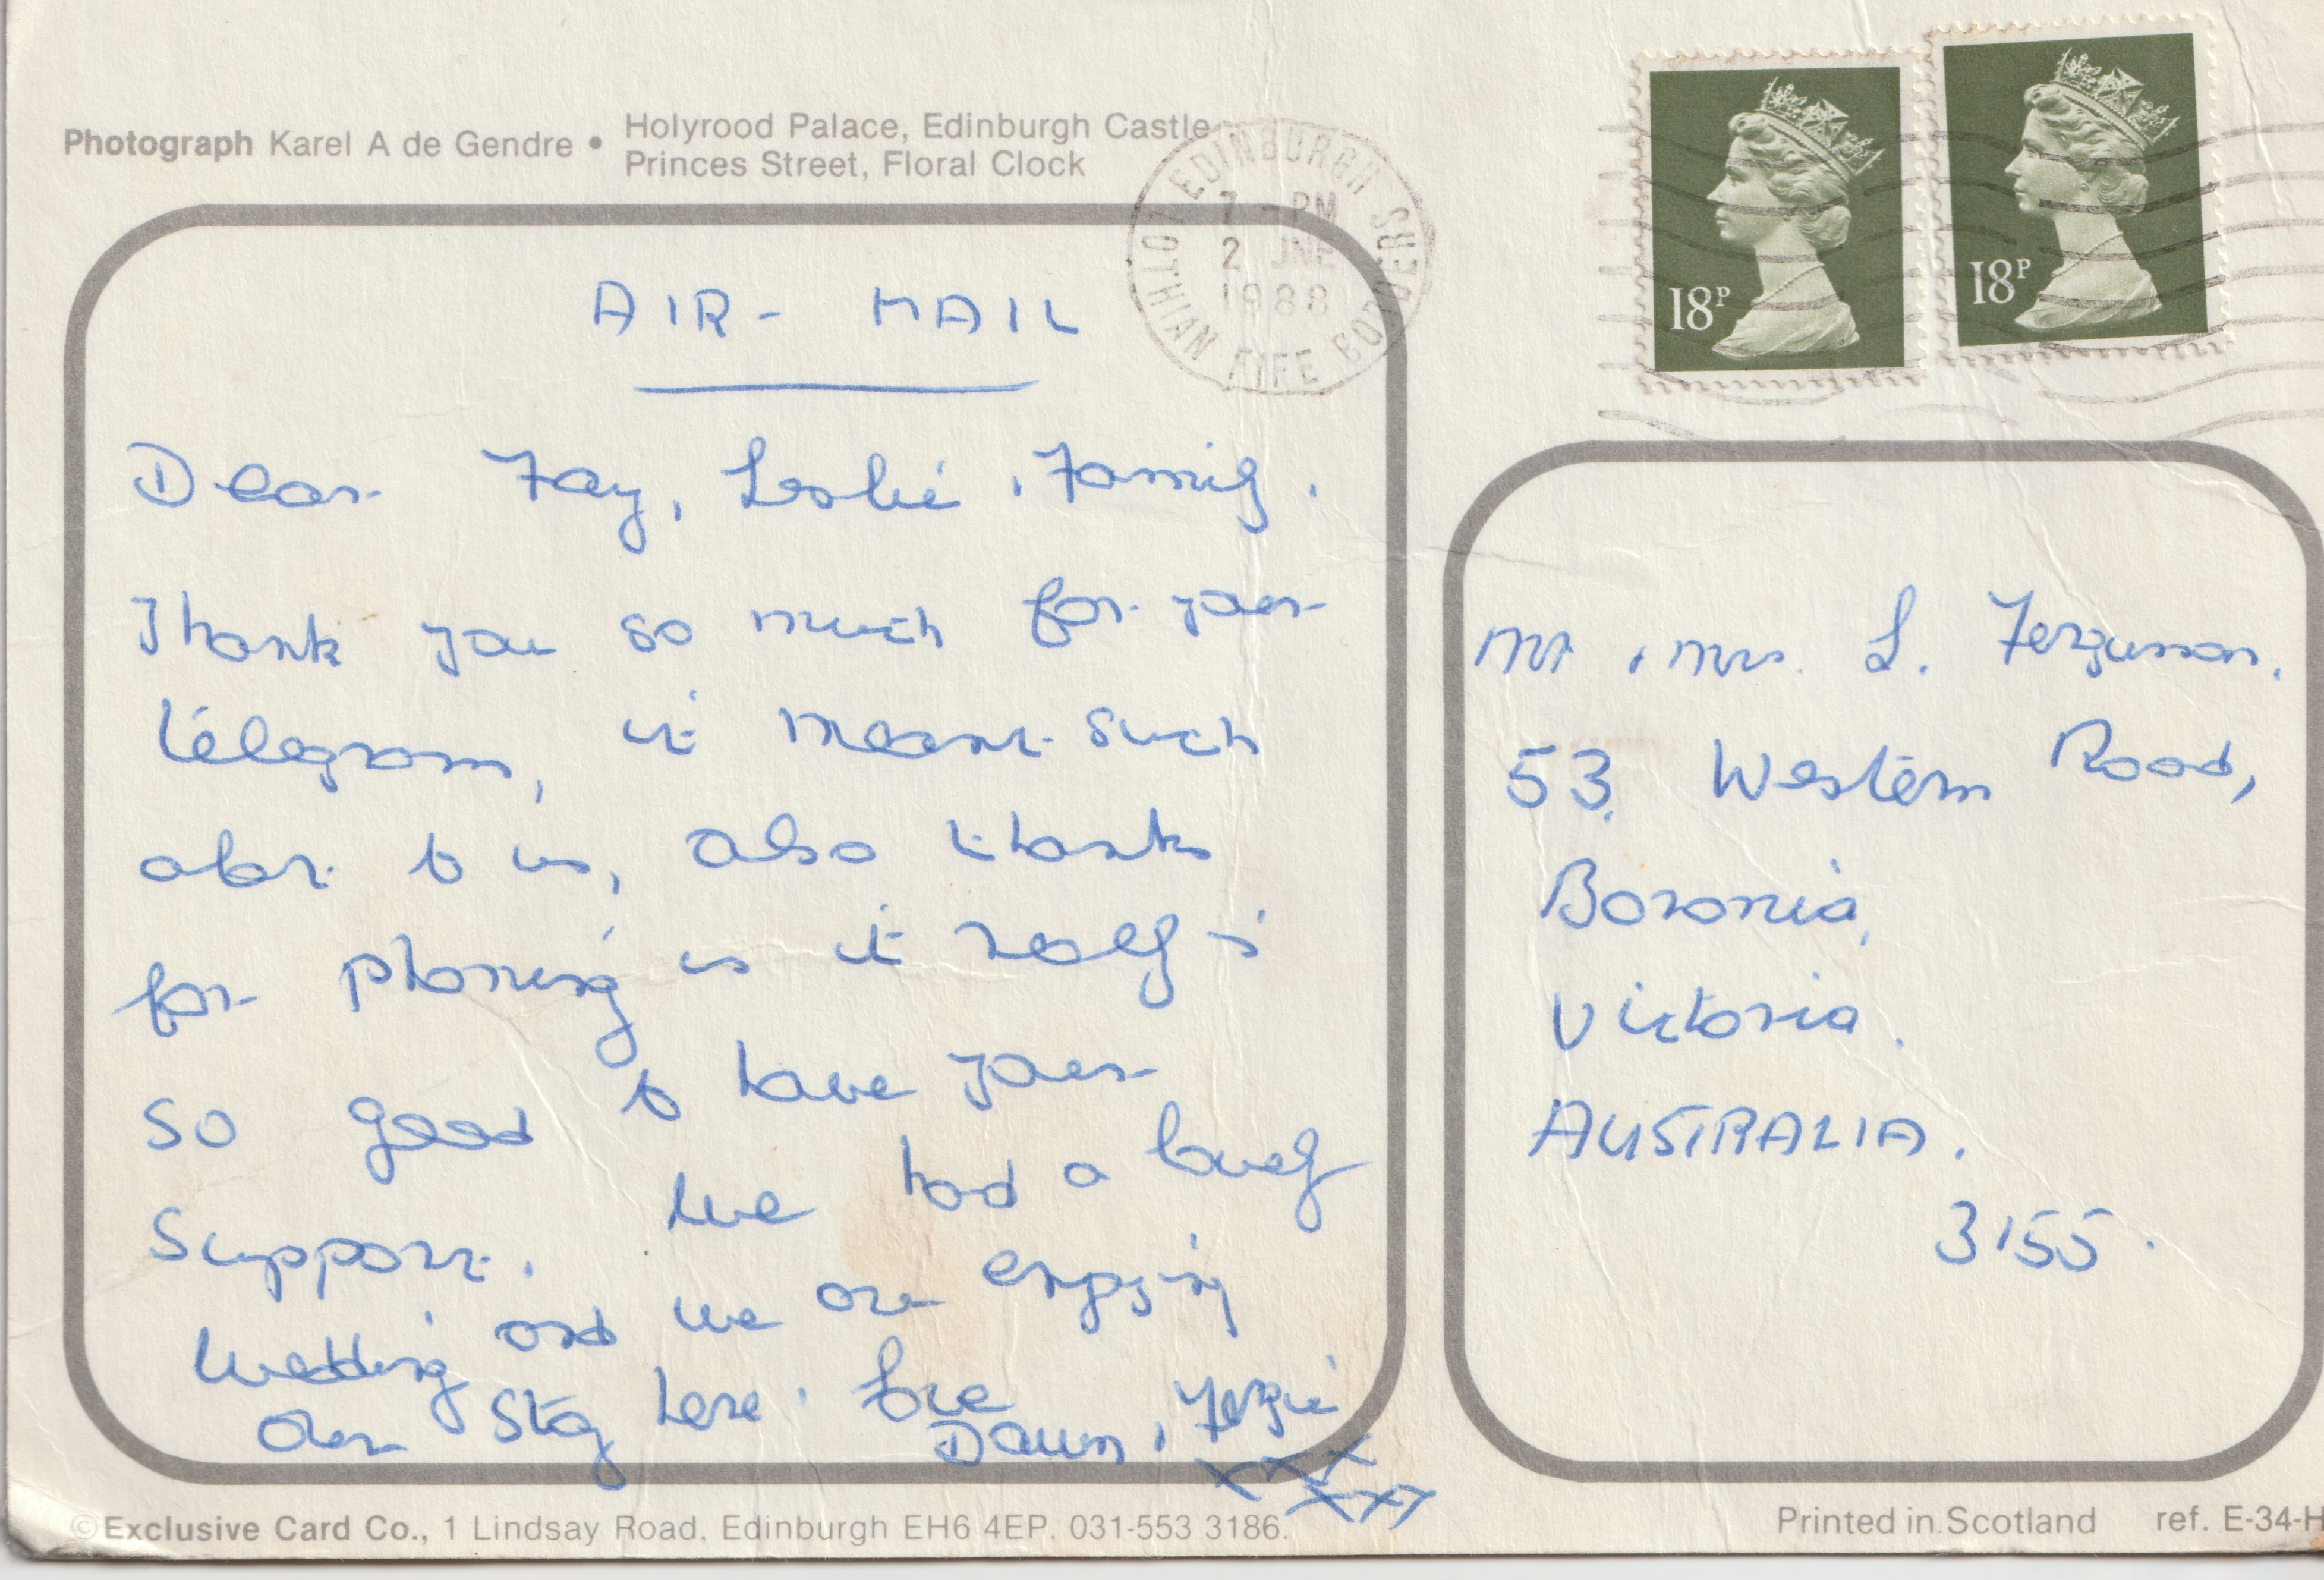 Photograph Karel A de Gendre • Holyrood Palace, Edinburgh Castle
Princes Street, Floral Clock
EDINBURGH SHERS
7 - PM
2 JNE
1988
LOTHIAN FIFE BORDERS
18P
18P
AIR-MAIL
Dear Fay, Leslie, Family.
Thank you so much for your
telegram, it meant such
alot to us, also thanks
for phoning us it really is
so good to have your
support. We had a lovely
wedding and we are enjoying
our stay here. Love
Dawn, Fergie
xxx
xxxx
Mr, Mrs. L. Ferguson.
53, Western Road,
Boronia,
Victoria.
AUSTRALIA.
3155.
©Exclusive Card Co., 1 Lindsay Road, Edinburgh EH6 4EP. 031-553 3186.
Printed in Scotland ref. E-34-H